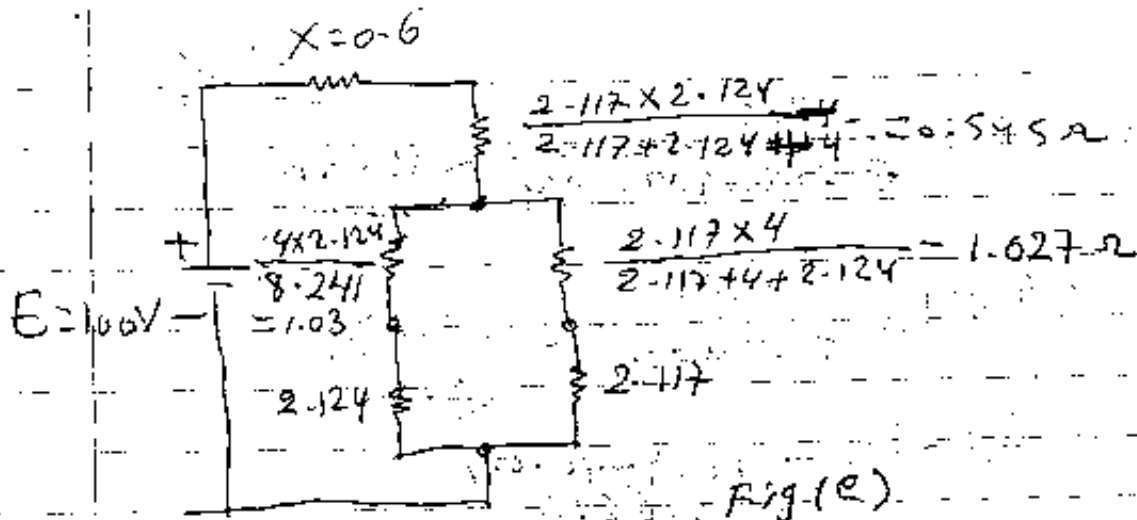 X=0.6
2.117 × 2.124
2.117+2.124+4 = 0.545 Ω
4×2.124
8.241
=1.03
2.117 × 4
2.117+4+2.124
= 1.027 Ω
+
E=100V –
2.124
2.117
Fig.(e)